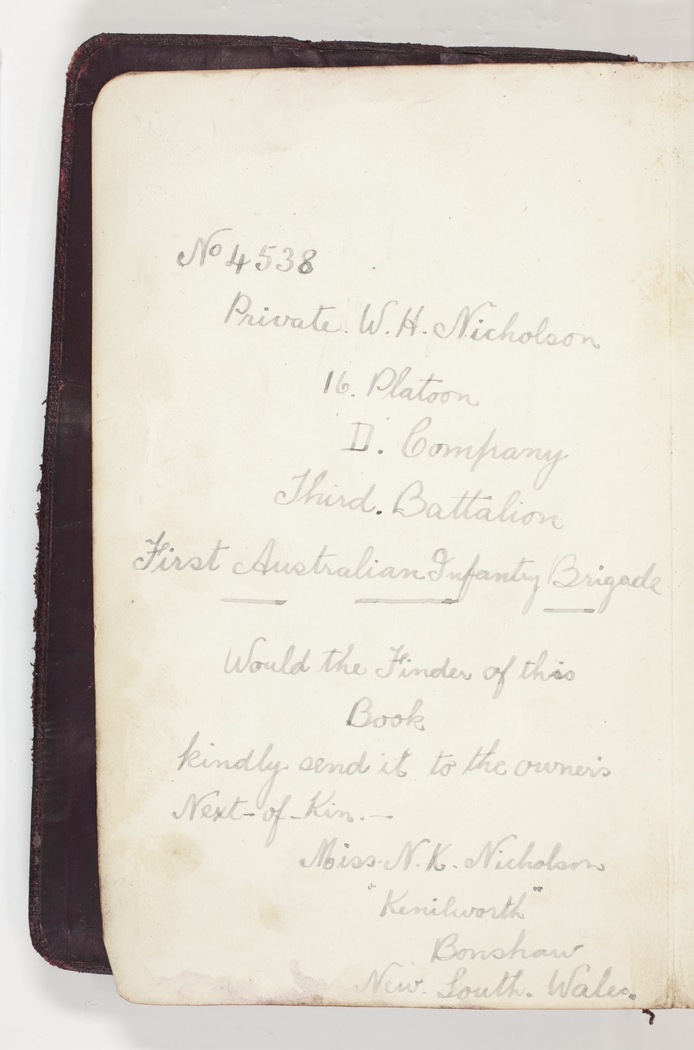 No 4538
Private. W. H. Nicholson
16. Platoon
'D'. Company
Third. Battalion
First Australian Infantry Brigade
Would the Finder of this
Book
kindly send it to the owner's
Next-of-Kin.—
Miss. N. K. Nicholson
"Kenilworth"
Bonshaw
New. South. Wales.